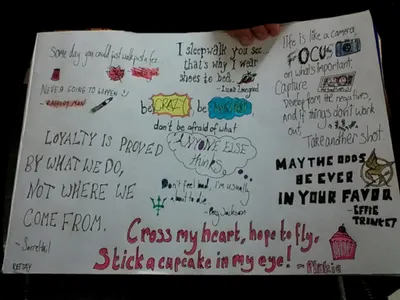 Some day you could just walk past a fez.
NEVER GOING TO HAPPEN
I sleepwalk you see
that's why I wear
shoes to bed.
- Luna Lovegood
life is like a camera
FOCUS
on what's important.
Capture
Develop from the negatives,
and if things don't work
out
Take another shot.
be CRAZY, be
don't be afraid of what
ANYONE ELSE
thinks.
LOYALTY IS PROVED
BY WHAT WE DO,
NOT WHERE WE
COME FROM.
Don't feel bad, I'm usually
about to die
- Percy Jackson
MAY THE ODDS
BE EVER
IN YOUR FAVOR
- EFFIE
TRINKET
Cross my heart, hope to fly,
Stick a cupcake in my eye! ~ Pinkie